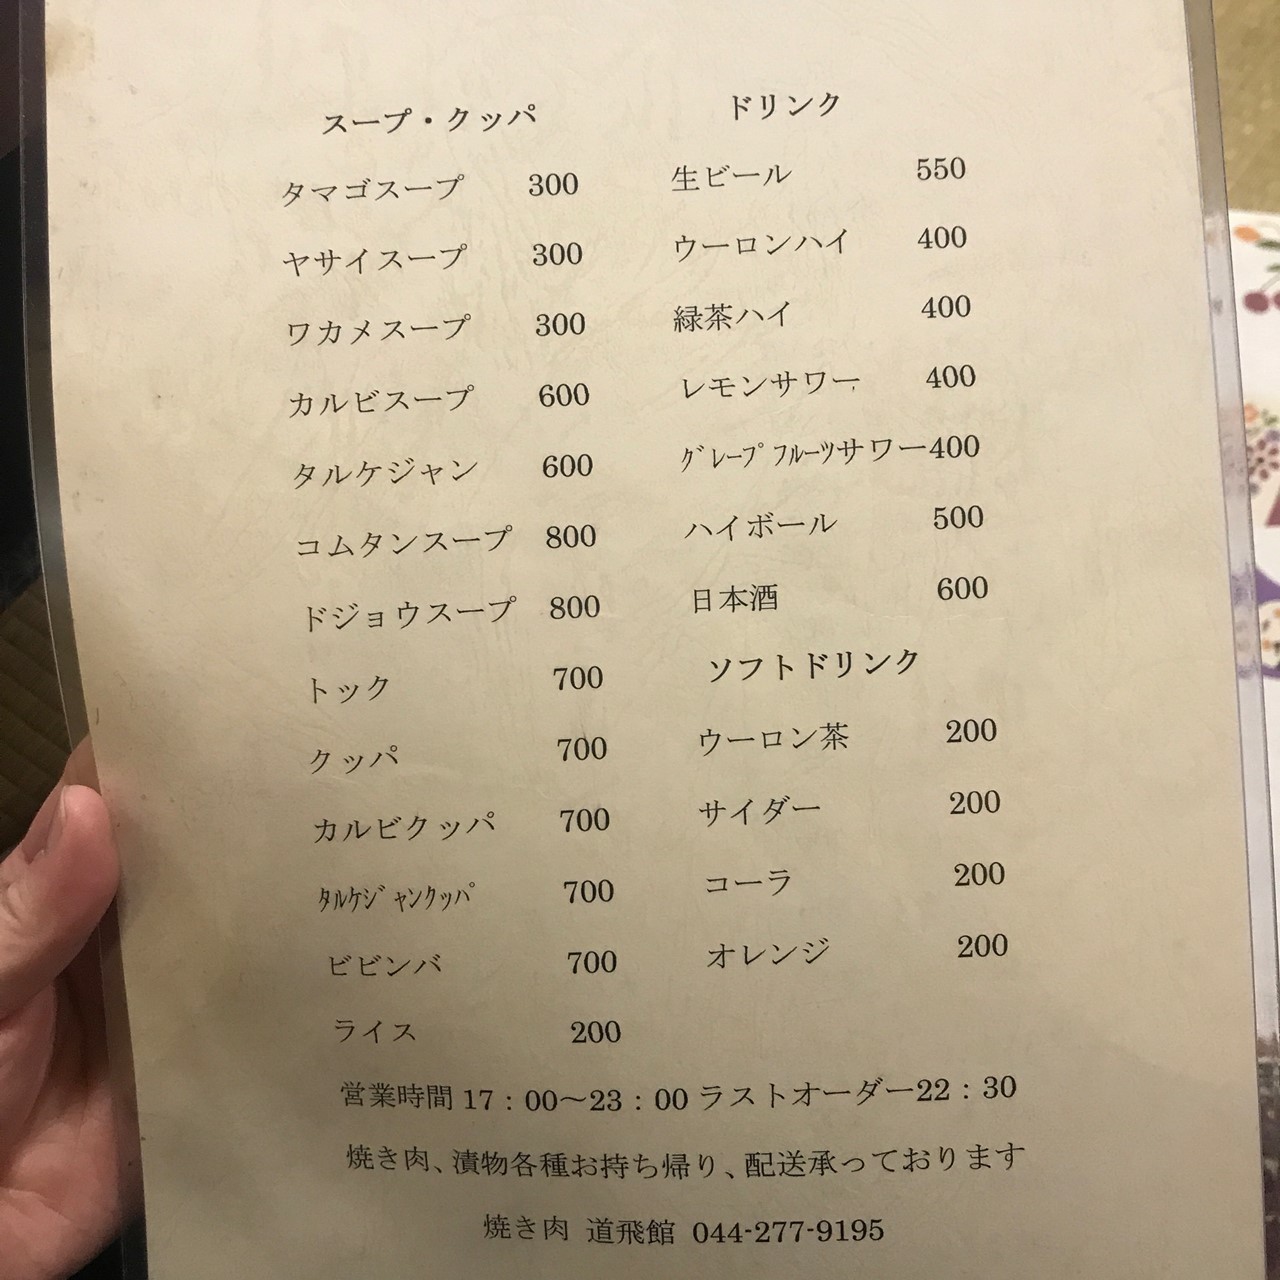 スープ・クッパ
タマゴスープ 300
ヤサイスープ 300
ワカメスープ 300
カルビスープ 600
タルケジャン 600
コムタンスープ 800
ドジョウスープ 800
トック 700
クッパ 700
カルビクッパ 700
ﾀﾙｹｼﾞｬﾝｸｯﾊﾟ 700
ビビンバ 700
ライス 200
ドリンク
生ビール 550
ウーロンハイ 400
緑茶ハイ 400
レモンサワー 400
ｸﾞﾚｰﾌﾟﾌﾙｰﾂサワー400
ハイボール 500
日本酒 600
ソフトドリンク
ウーロン茶 200
サイダー 200
コーラ 200
オレンジ 200
営業時間 17：00～23：00 ラストオーダー22：30
焼き肉、漬物各種お持ち帰り、配送承っております
焼き肉 道飛館 044-277-9195